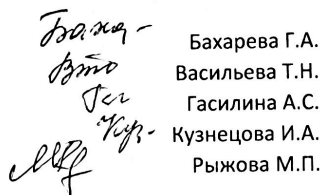 Баха- Бахарева Г.А.
Васильева Т.Н.
Гасилина А.С.
Куз- Кузнецова И.А.
Рыжова М.П.